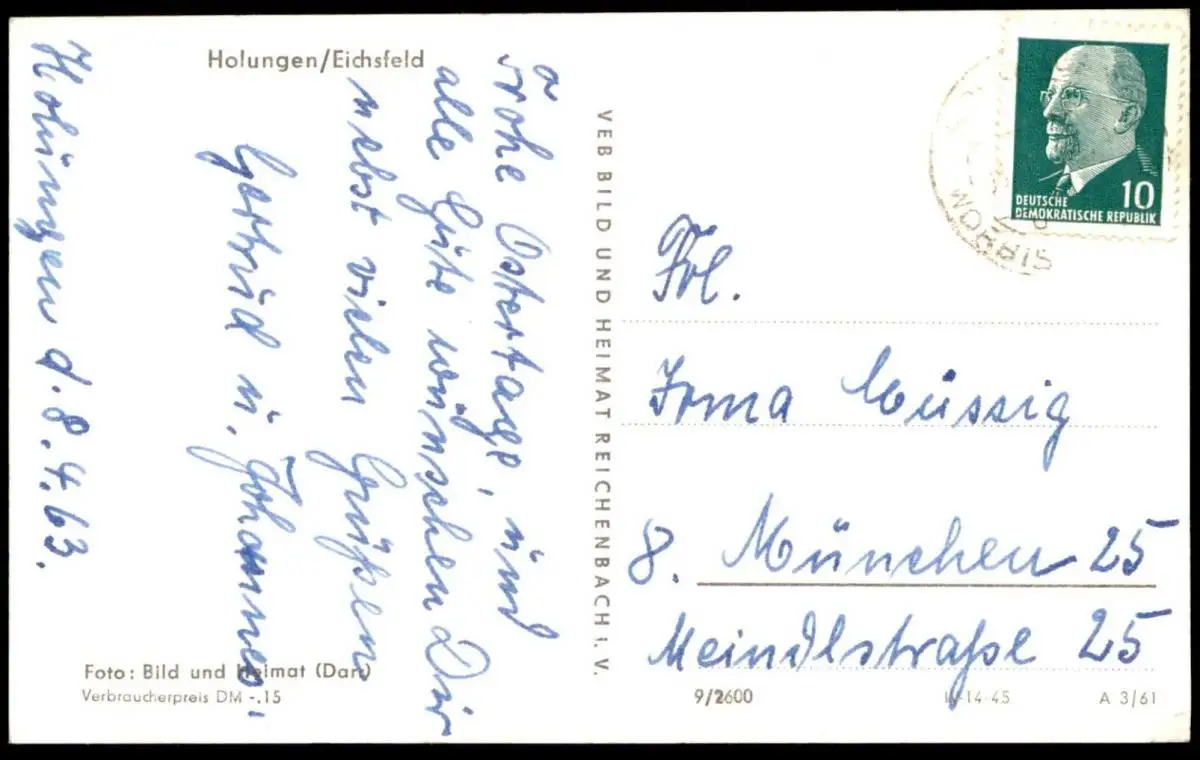 Holungen/Eichsfeld
Holungen d. 8.4.63.
Frohe Ostertage, und
alle Güte wünschen Dir
nebst vielen Grüßen
Gertrud u. Johannes.
Foto: Bild und Heimat (Dan)
Verbraucherpreis DM -.15
VEB BILD UND HEIMAT REICHENBACH i. V.
WORBIS
10
DEUTSCHE
DEMOKRATISCHE REPUBLIK
Frl.
Irma Müssig
8. München 25
Meindlstraße 25
9/2600
IV-14-45
A 3/61